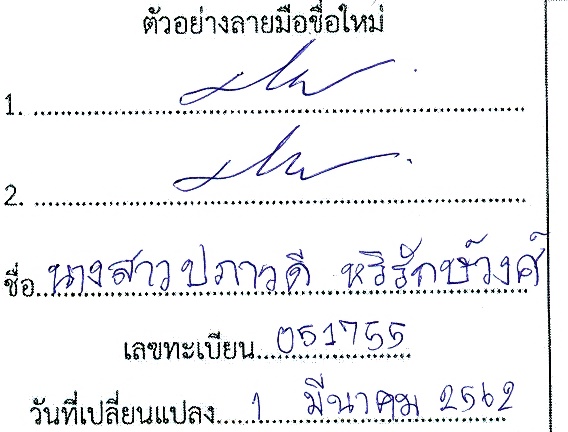 ตัวอย่างลายมือชื่อใหม่
1.
2.
ชื่อ นางสาวปภาวดี หริรักษ์วงศ์
เลขทะเบียน 051755
วันที่เปลี่ยนแปลง 1 มีนาคม 2562